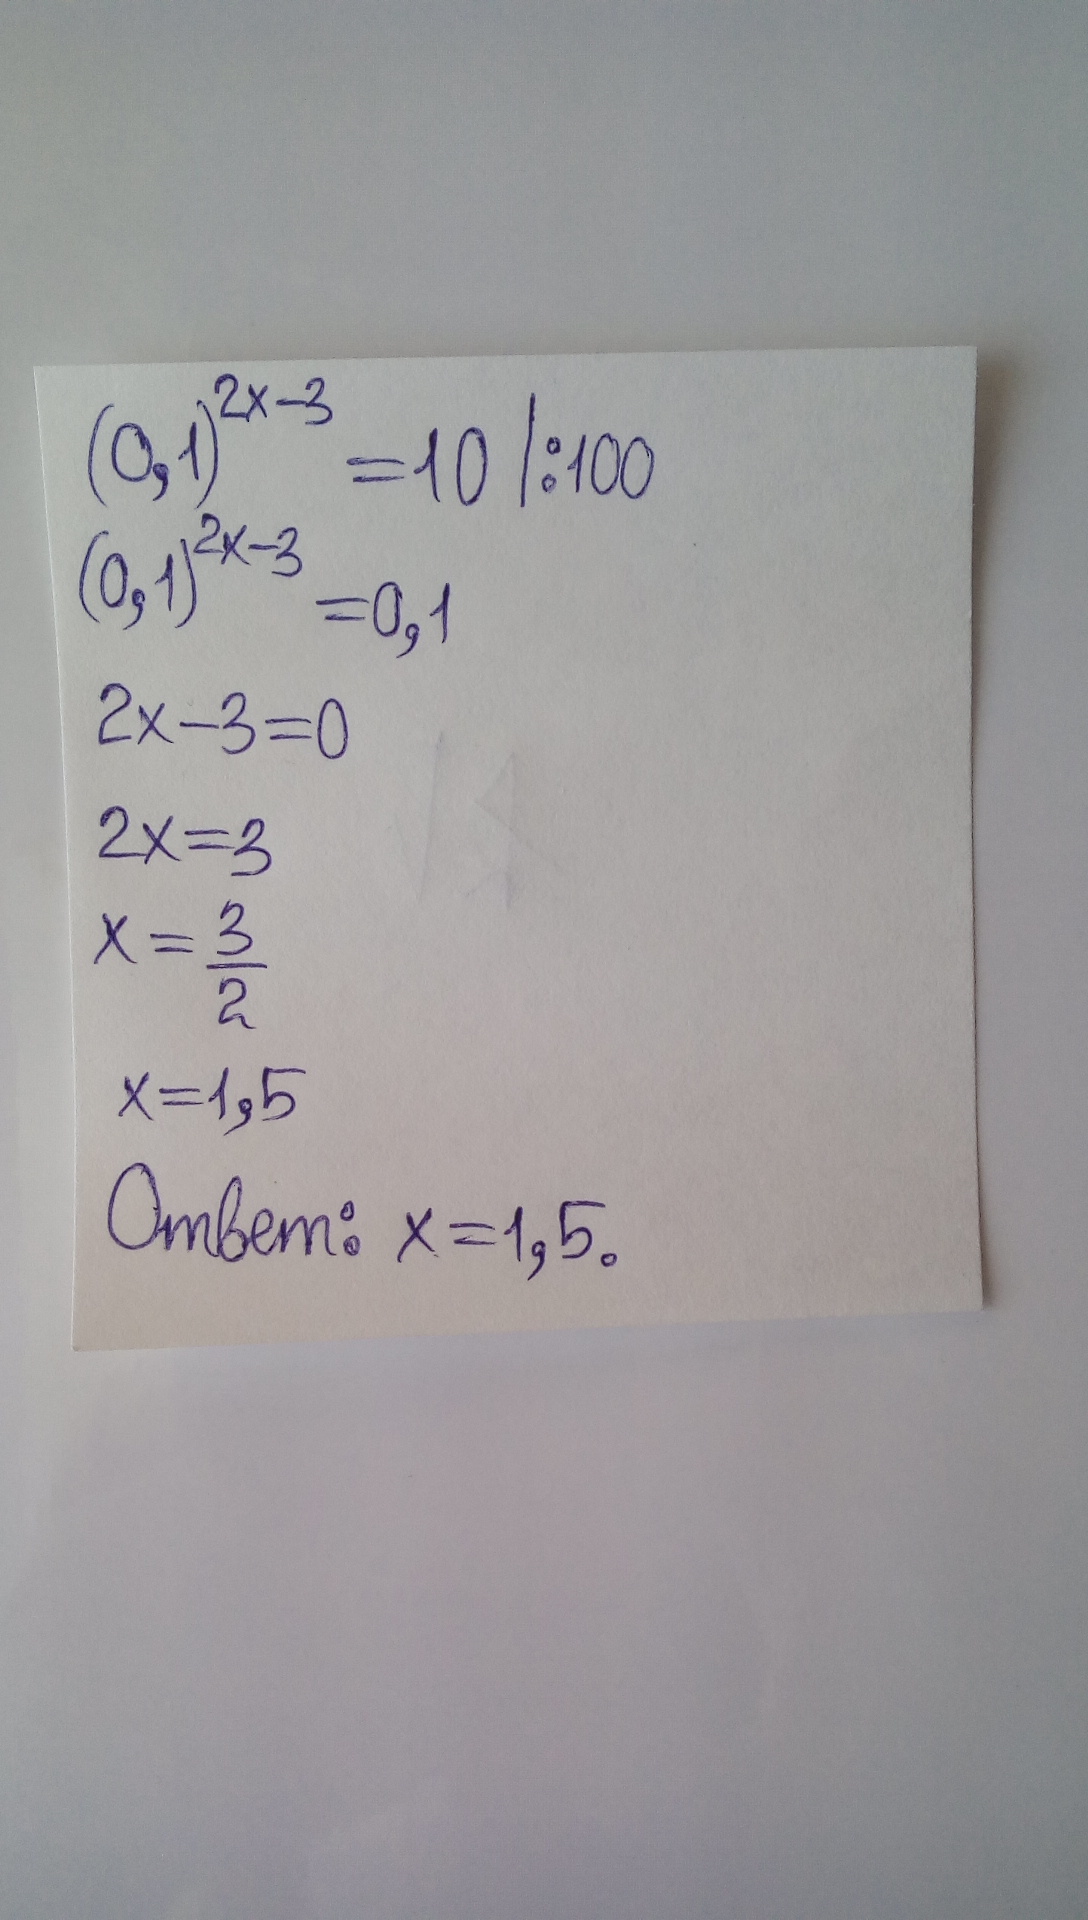 (0,1)^{2x-3} = 10 |:100
(0,1)^{2x-3} = 0,1
2x-3=0
2x=3
x = \frac{3}{2}
x=1,5
Ответ: x=1,5.